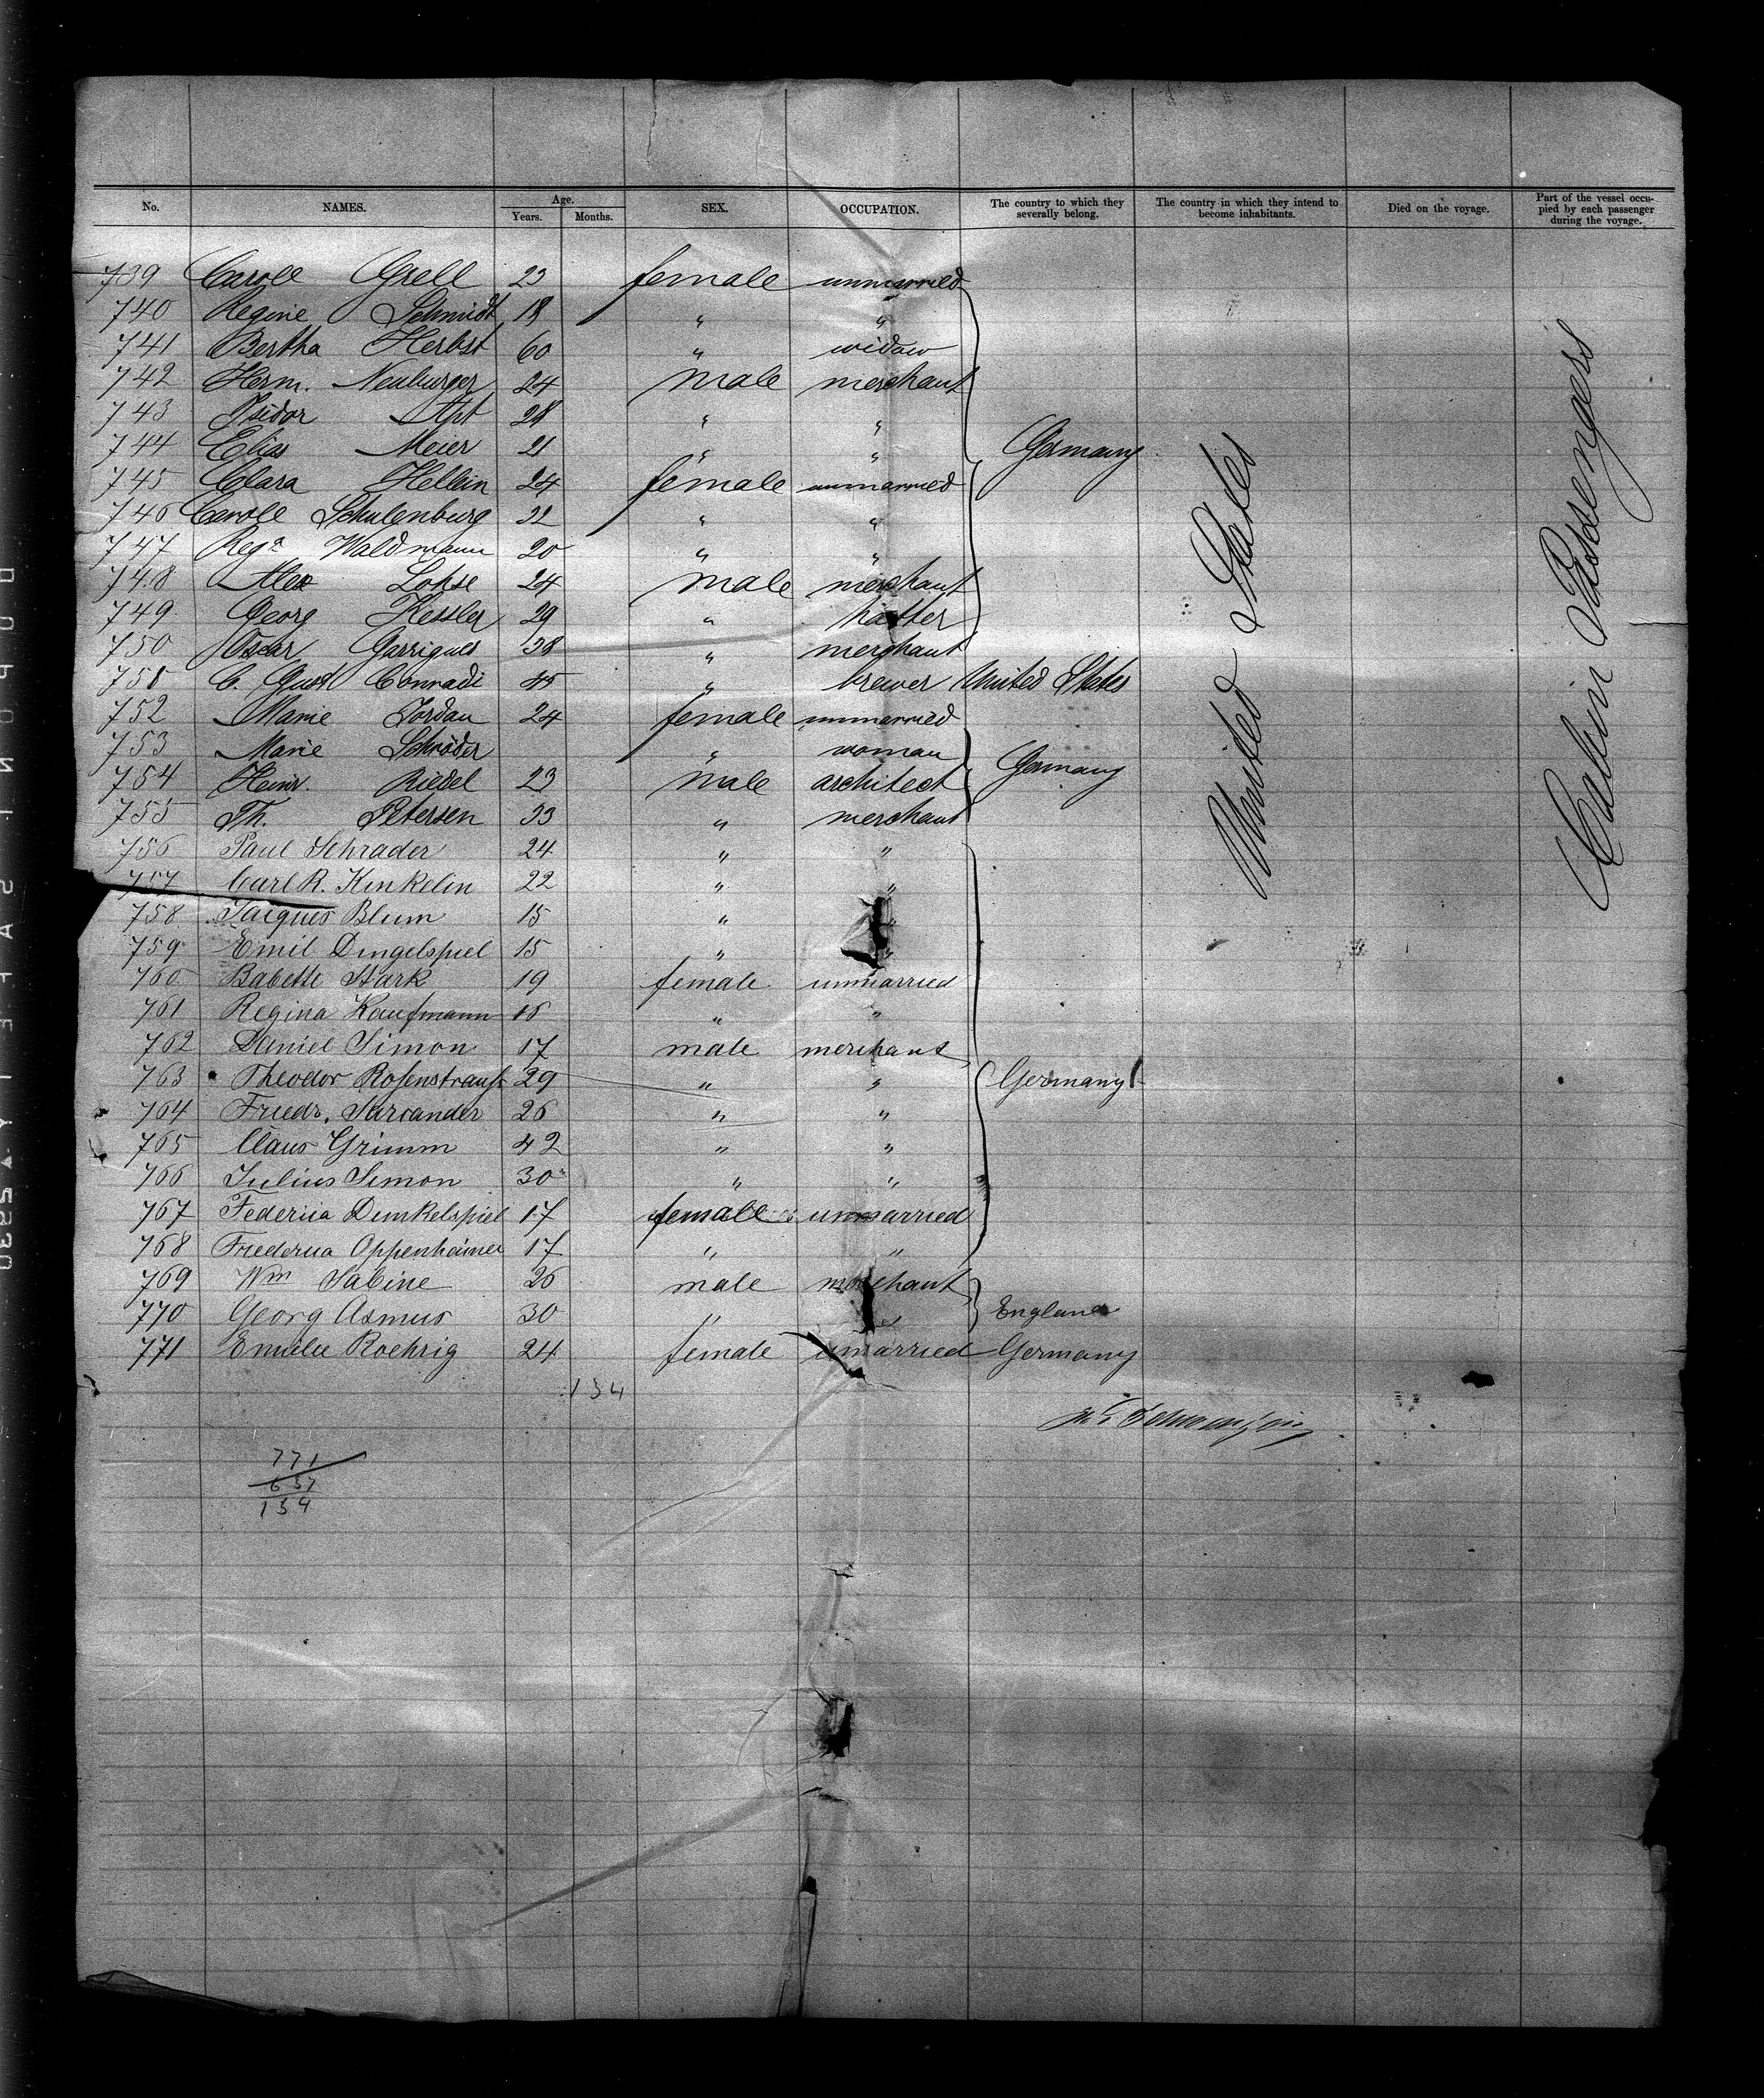 No. NAMES. Age. Years. Months. SEX. OCCUPATION. The country to which they severally belong. The country in which they intend to become inhabitants. Died on the voyage. Part of the vessel occupied by each passenger during the voyage.
739 Caroll Grell 23 female unmarried
740 Regine Schmidt 18 " "
741 Bertha Herbst 60 " widow
742 Herm. Neuburger 24 male merchant
743 Isidor Apt 28 " "
744 Elias Meier 21 " " Germany
745 Clara Hellein 24 female unmarried
746 Caroll Schulenburg 22 " "
747 Rega Waldmann 20 " "
748 Alex Lohse 24 male merchant
749 Georg Kessler 29 " hatter
750 Oscar Garrigues 38 " merchant
751 C. Gust Conradi 45 " brewer United States
752 Marie Jordan 24 female unmarried
753 Marie Schröder " woman
754 Heinr. Riedel 23 male architect Germany
755 Th. Petersen 33 " merchant
756 Paul Schrader 24 " "
757 Carl R. Kinkelin 22 " "
758 Jacques Blum 15 " "
759 Emil Dingelspiel 15 " "
760 Babette Stark 19 female unmarried
761 Regina Kaufmann 16 " "
762 Daniel Simon 17 male merchant
763 Theodor Rosenstrauss 29 " " Germany
764 Friedr. Sarcander 26 " "
765 Claus Grimm 42 " "
766 Julius Simon 30 " "
767 Federica Dunkelspiel 17 female unmarried
768 Frederica Oppenheimer 17 " "
769 Wm Sabine 26 male merchant
770 Georg Asmus 30 " " England
771 Emilie Roehrig 24 female unmarried Germany
134
771
637
134
United States
Cabin Passengers